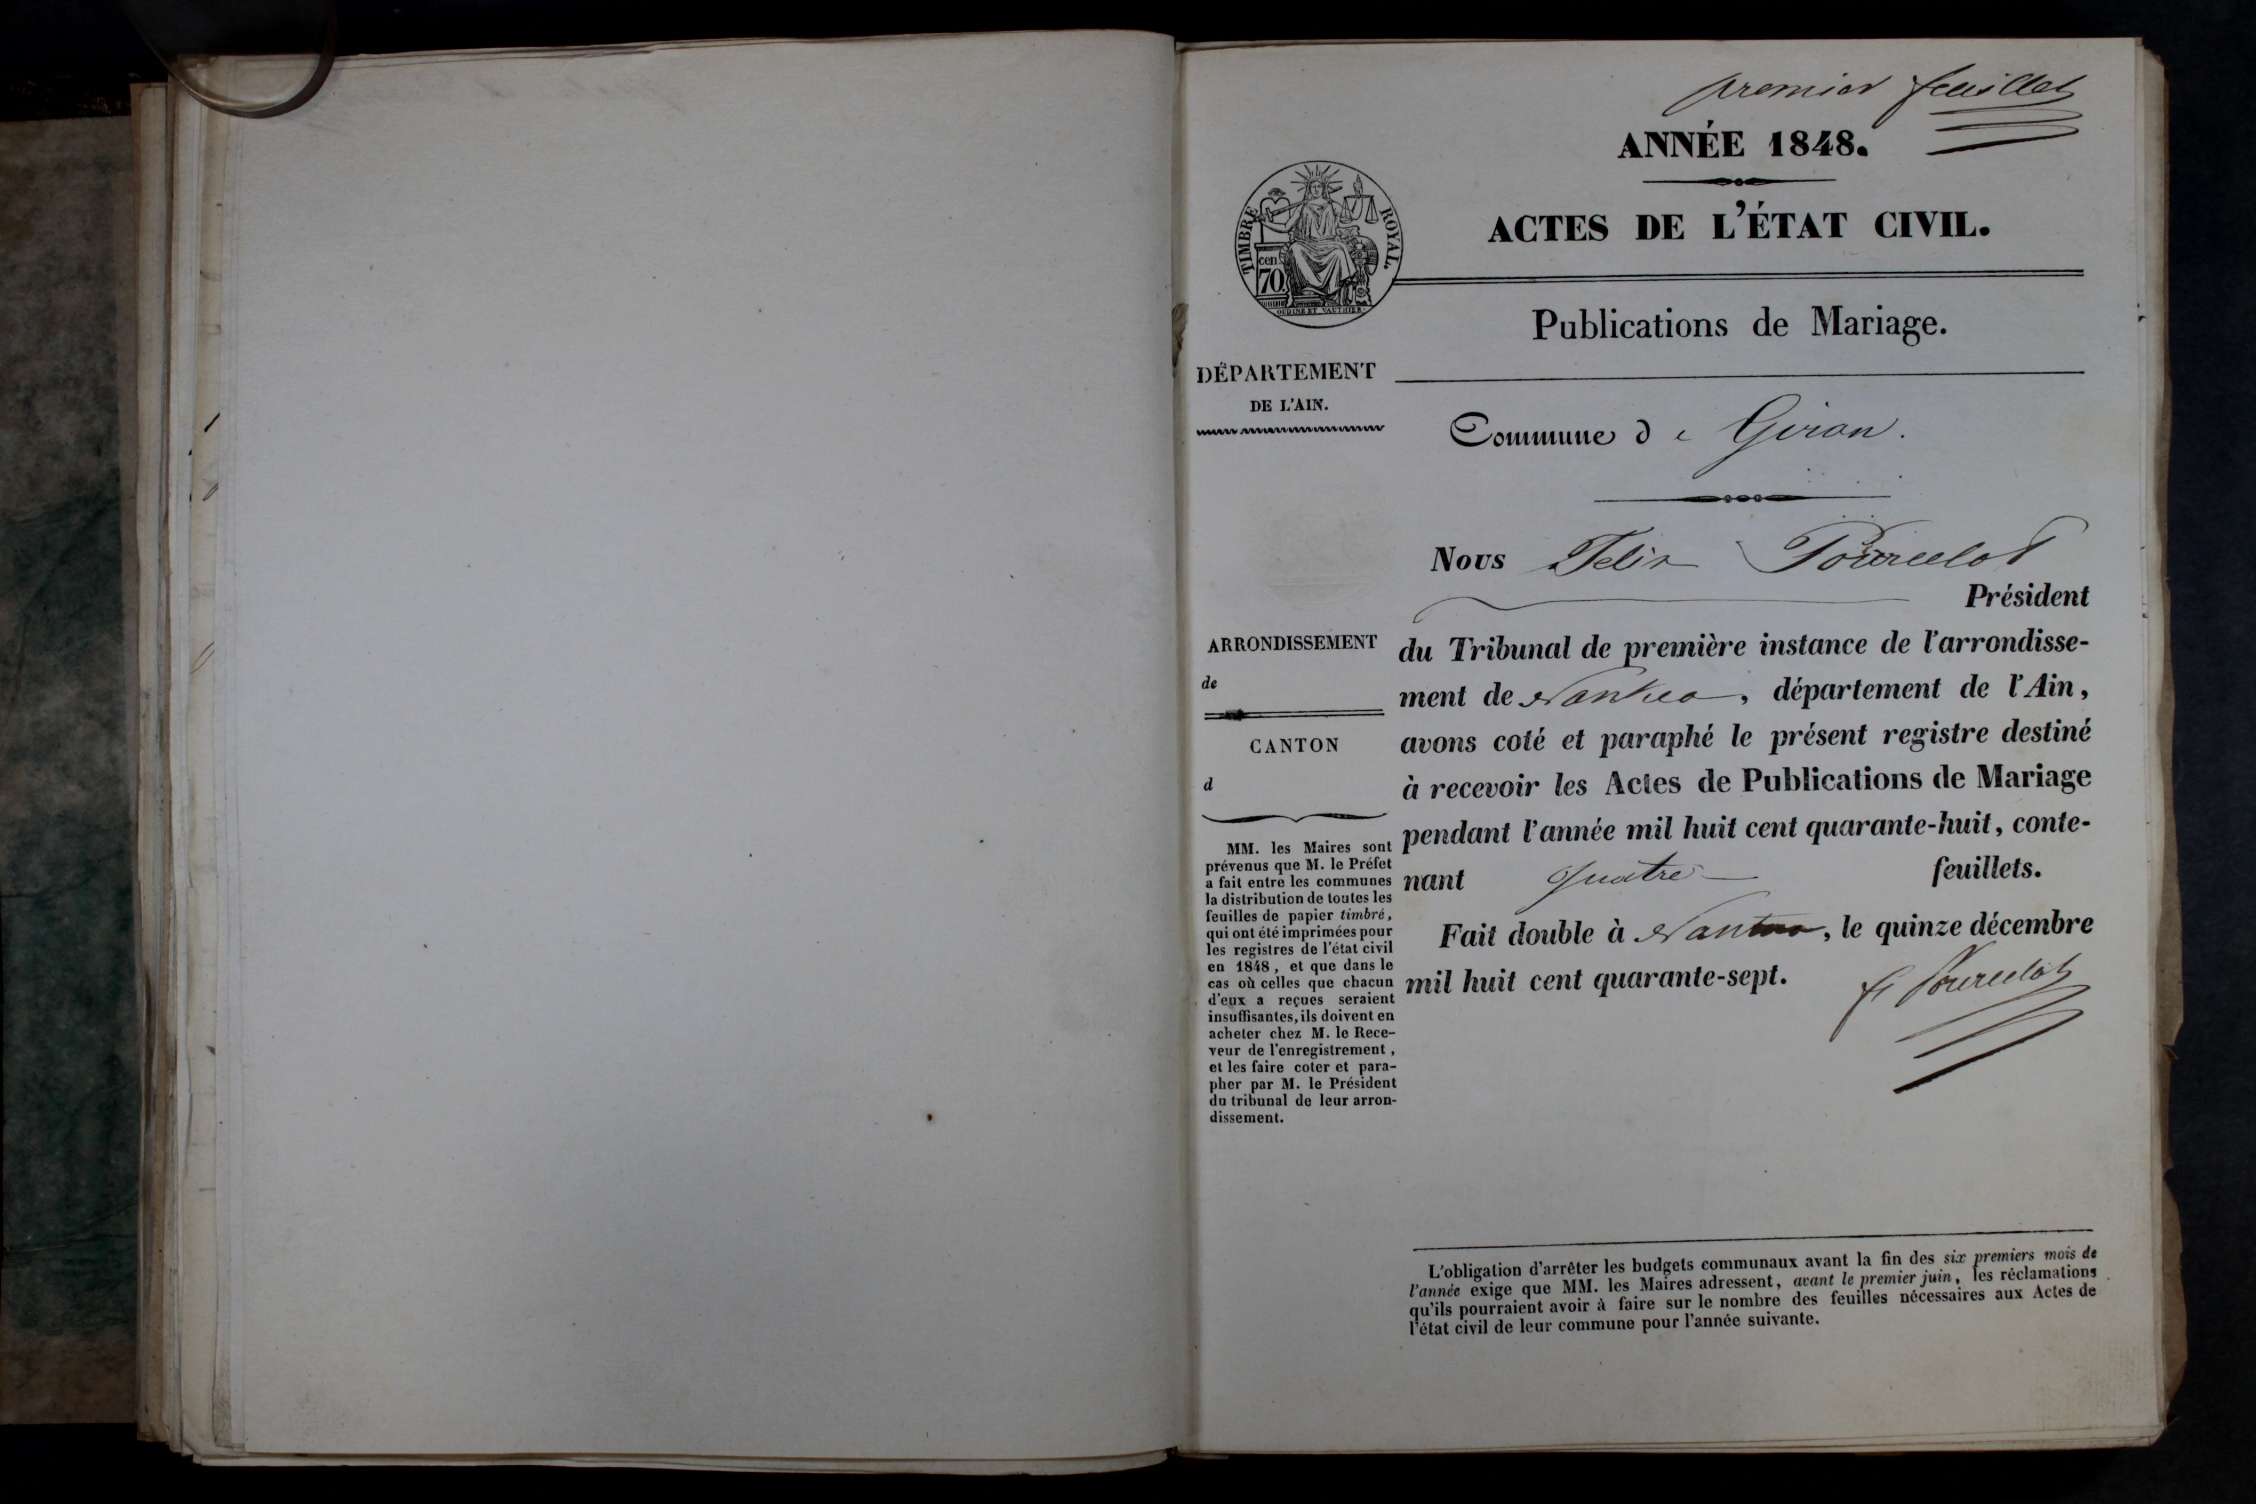 premier feuillet
ANNÉE 1848.
ACTES DE L'ÉTAT CIVIL.
TIMBRE ROYAL.
cen.
70
OUDINE ET VAUTHIER
Publications de Mariage.
DÉPARTEMENT
DE L'AIN.
Commune d e Giron.
Nous Felix Pourcelot
Président
du Tribunal de première instance de l'arrondisse-
ment de Nantua, département de l'Ain,
avons coté et paraphé le présent registre destiné
à recevoir les Actes de Publications de Mariage
pendant l'année mil huit cent quarante-huit, conte-
nant quatre feuillets.
Fait double à Nantua, le quinze décembre
mil huit cent quarante-sept.
f Pourcelot
ARRONDISSEMENT
de
CANTON
d
MM. les Maires sont
prévenus que M. le Préfet
a fait entre les communes
la distribution de toutes les
feuilles de papier timbré,
qui ont été imprimées pour
les registres de l'état civil
en 1848, et que dans le
cas où celles que chacun
d'eux a reçues seraient
insuffisantes, ils doivent en
acheter chez M. le Rece-
veur de l'enregistrement,
et les faire coter et para-
pher par M. le Président
du tribunal de leur arron-
dissement.
L'obligation d'arrêter les budgets communaux avant la fin des six premiers mois de
l'année exige que MM. les Maires adressent, avant le premier juin, les réclamations
qu'ils pourraient avoir à faire sur le nombre des feuilles nécessaires aux Actes de
l'état civil de leur commune pour l'année suivante.